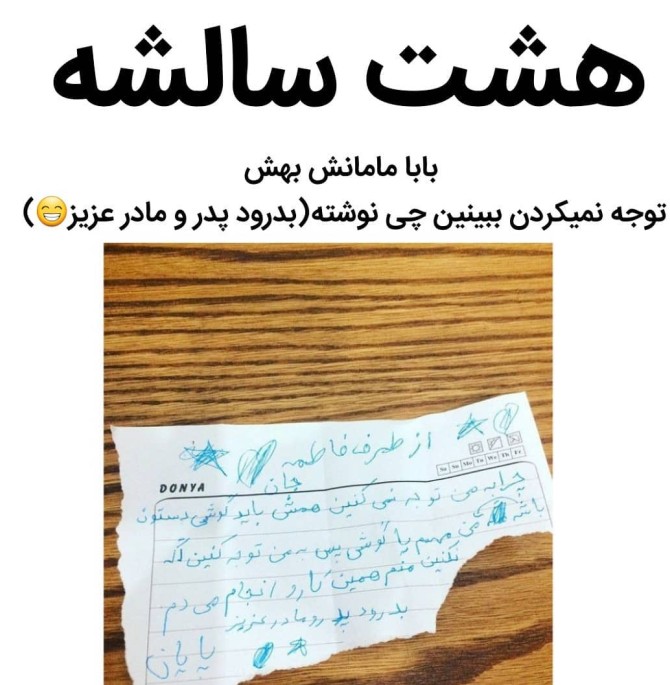 هشت سالشه
بابا مامانش بهش
توجه نمیکردن ببینین چی نوشته(بدرود پدر و مادر عزیز😁)
از طرف فاطمه
جان
DONYA
Sa Su Mo Tu We Th Fr
چرا به من توجه نمی کنین همش باید گوشی دستتون
باشه من مهمم یا گوشی پس به من توجه کنین اگه
نکنین منم همین کارو انجام می دم
بدرود پدر و مادر عزیز
پایان